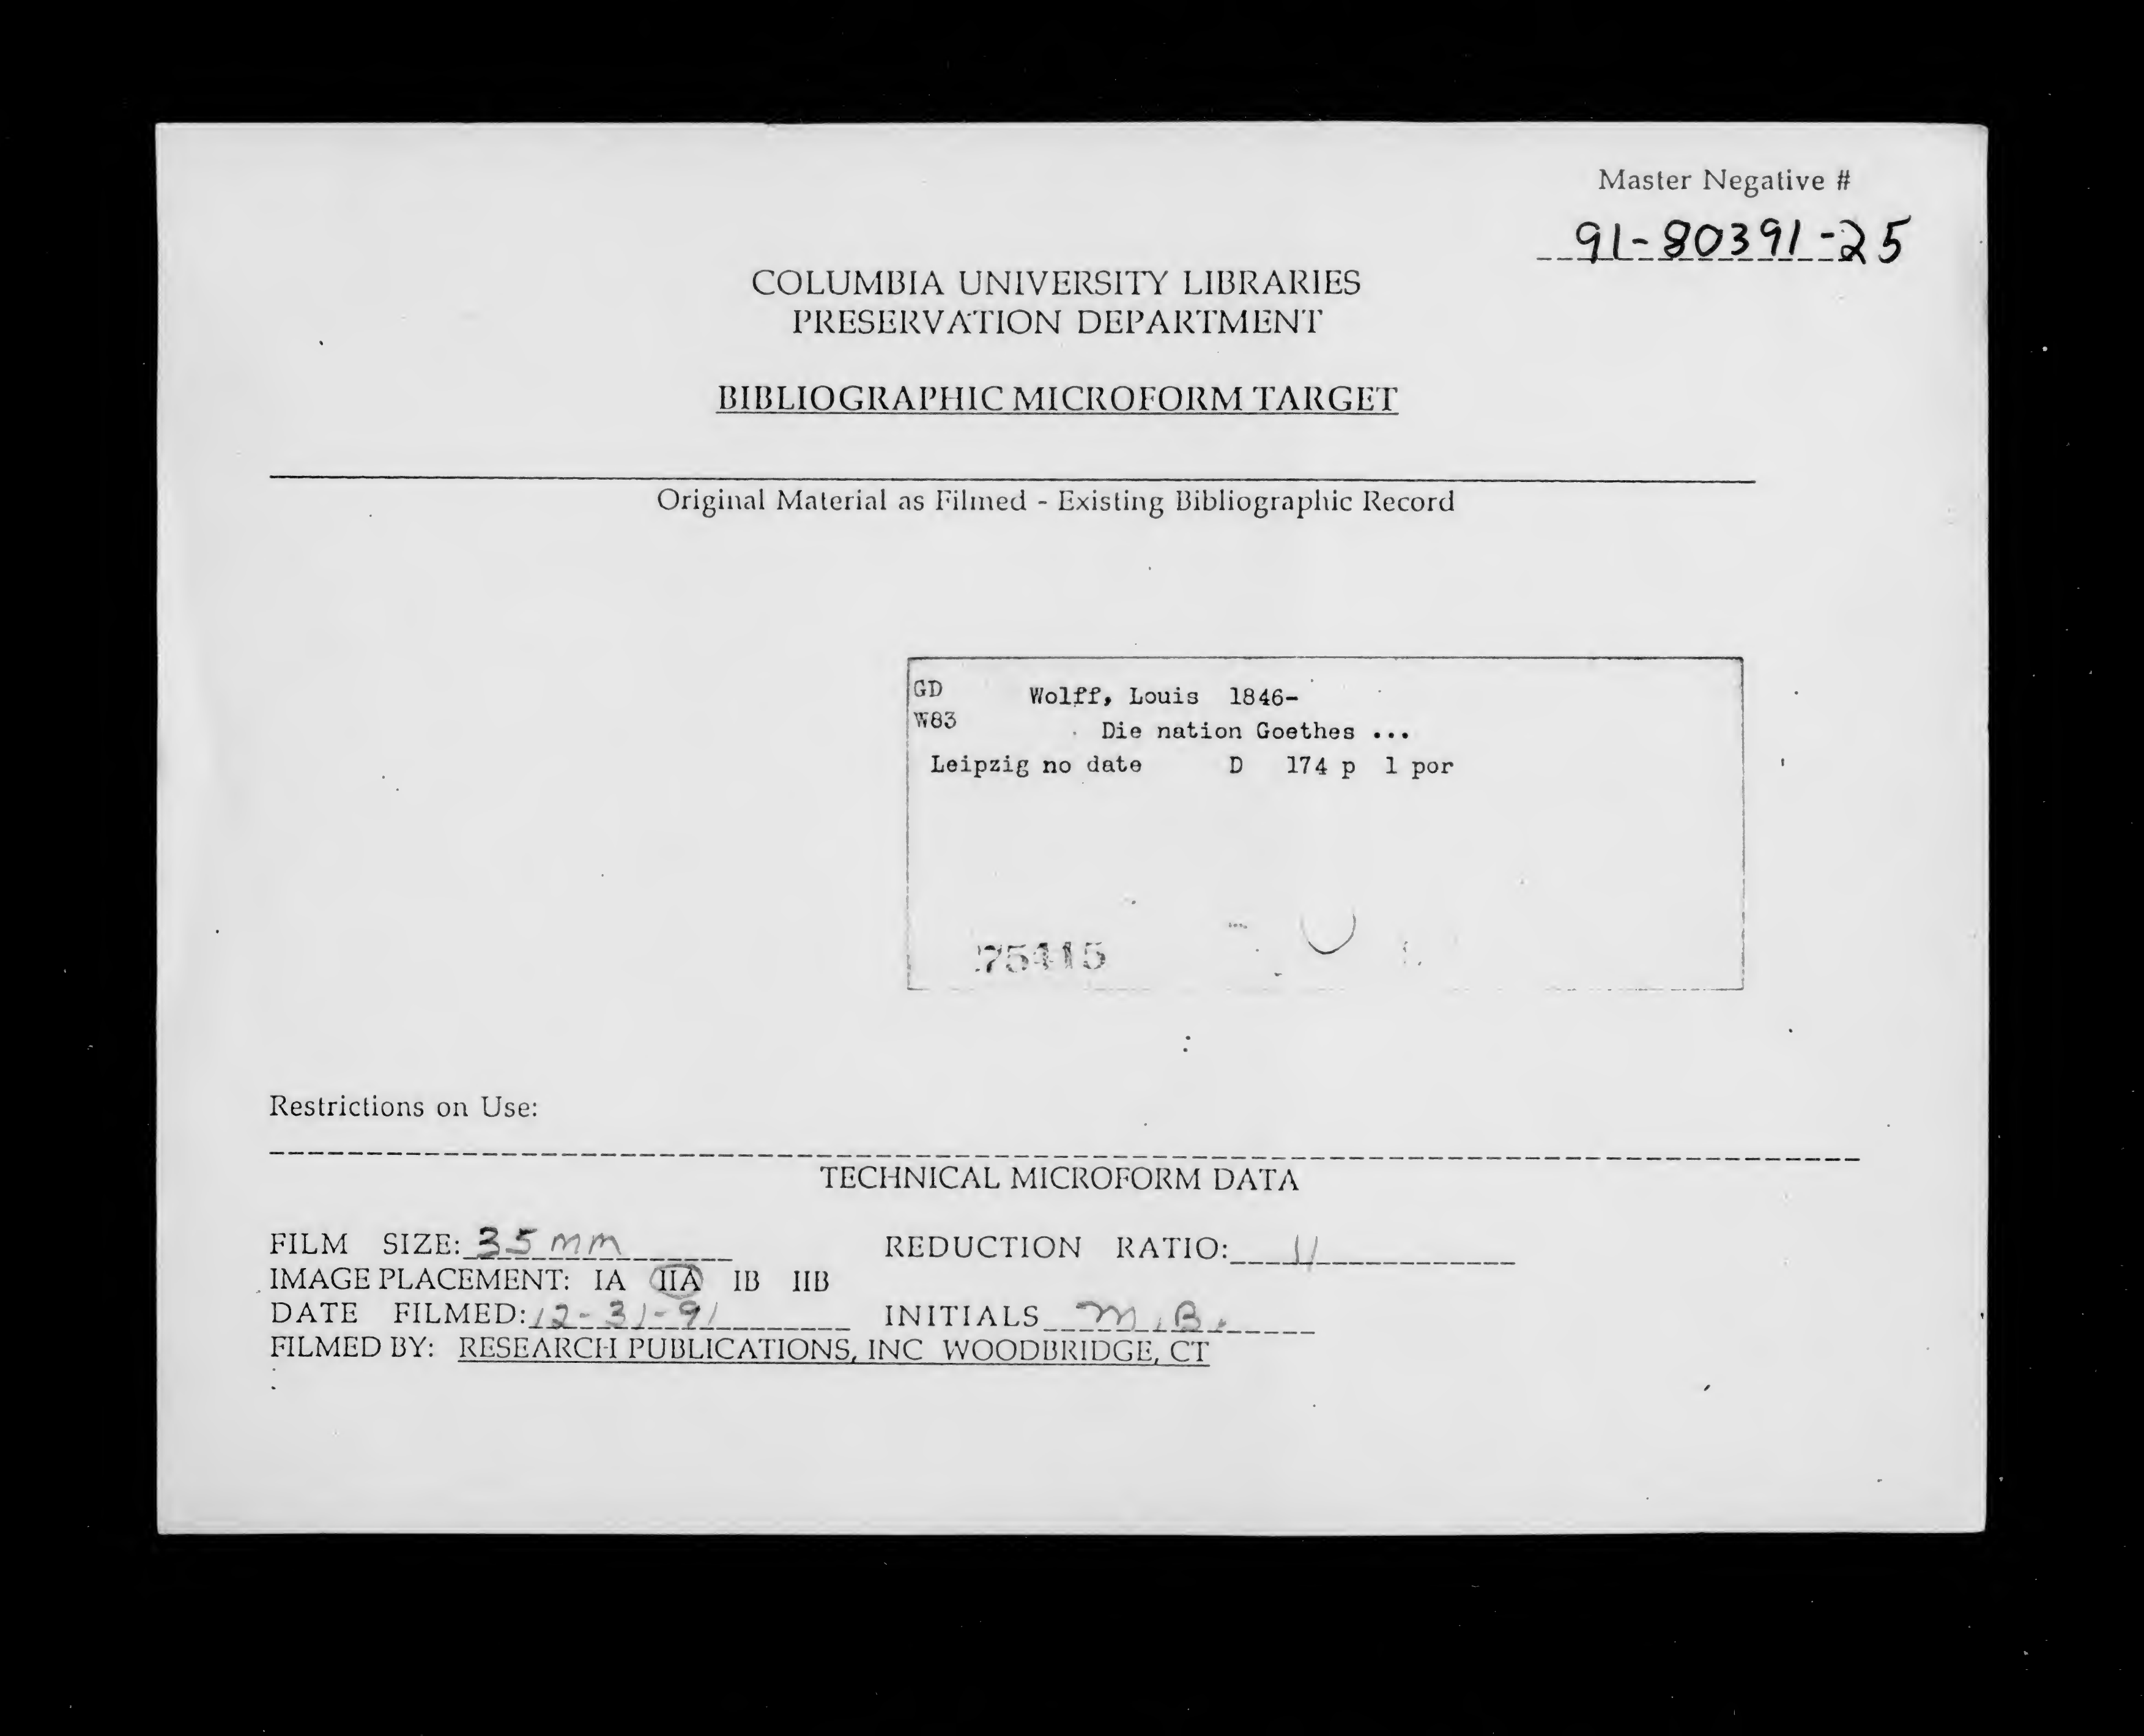 Master Negative #
91-80391-25
COLUMBIA UNIVERSITY LIBRARIES
PRESERVATION DEPARTMENT
BIBLIOGRAPHIC MICROFORM TARGET
Original Material as Filmed - Existing Bibliographic Record
GD Wolff, Louis 1846-
W83 Die nation Goethes ...
Leipzig no date D 174 p 1 por
Restrictions on Use:
TECHNICAL MICROFORM DATA
FILM SIZE: 35mm REDUCTION RATIO: 11
IMAGE PLACEMENT: IA IIA IB IIB
DATE FILMED: 12-31-91 INITIALS M.B.
FILMED BY: RESEARCH PUBLICATIONS, INC WOODBRIDGE, CT